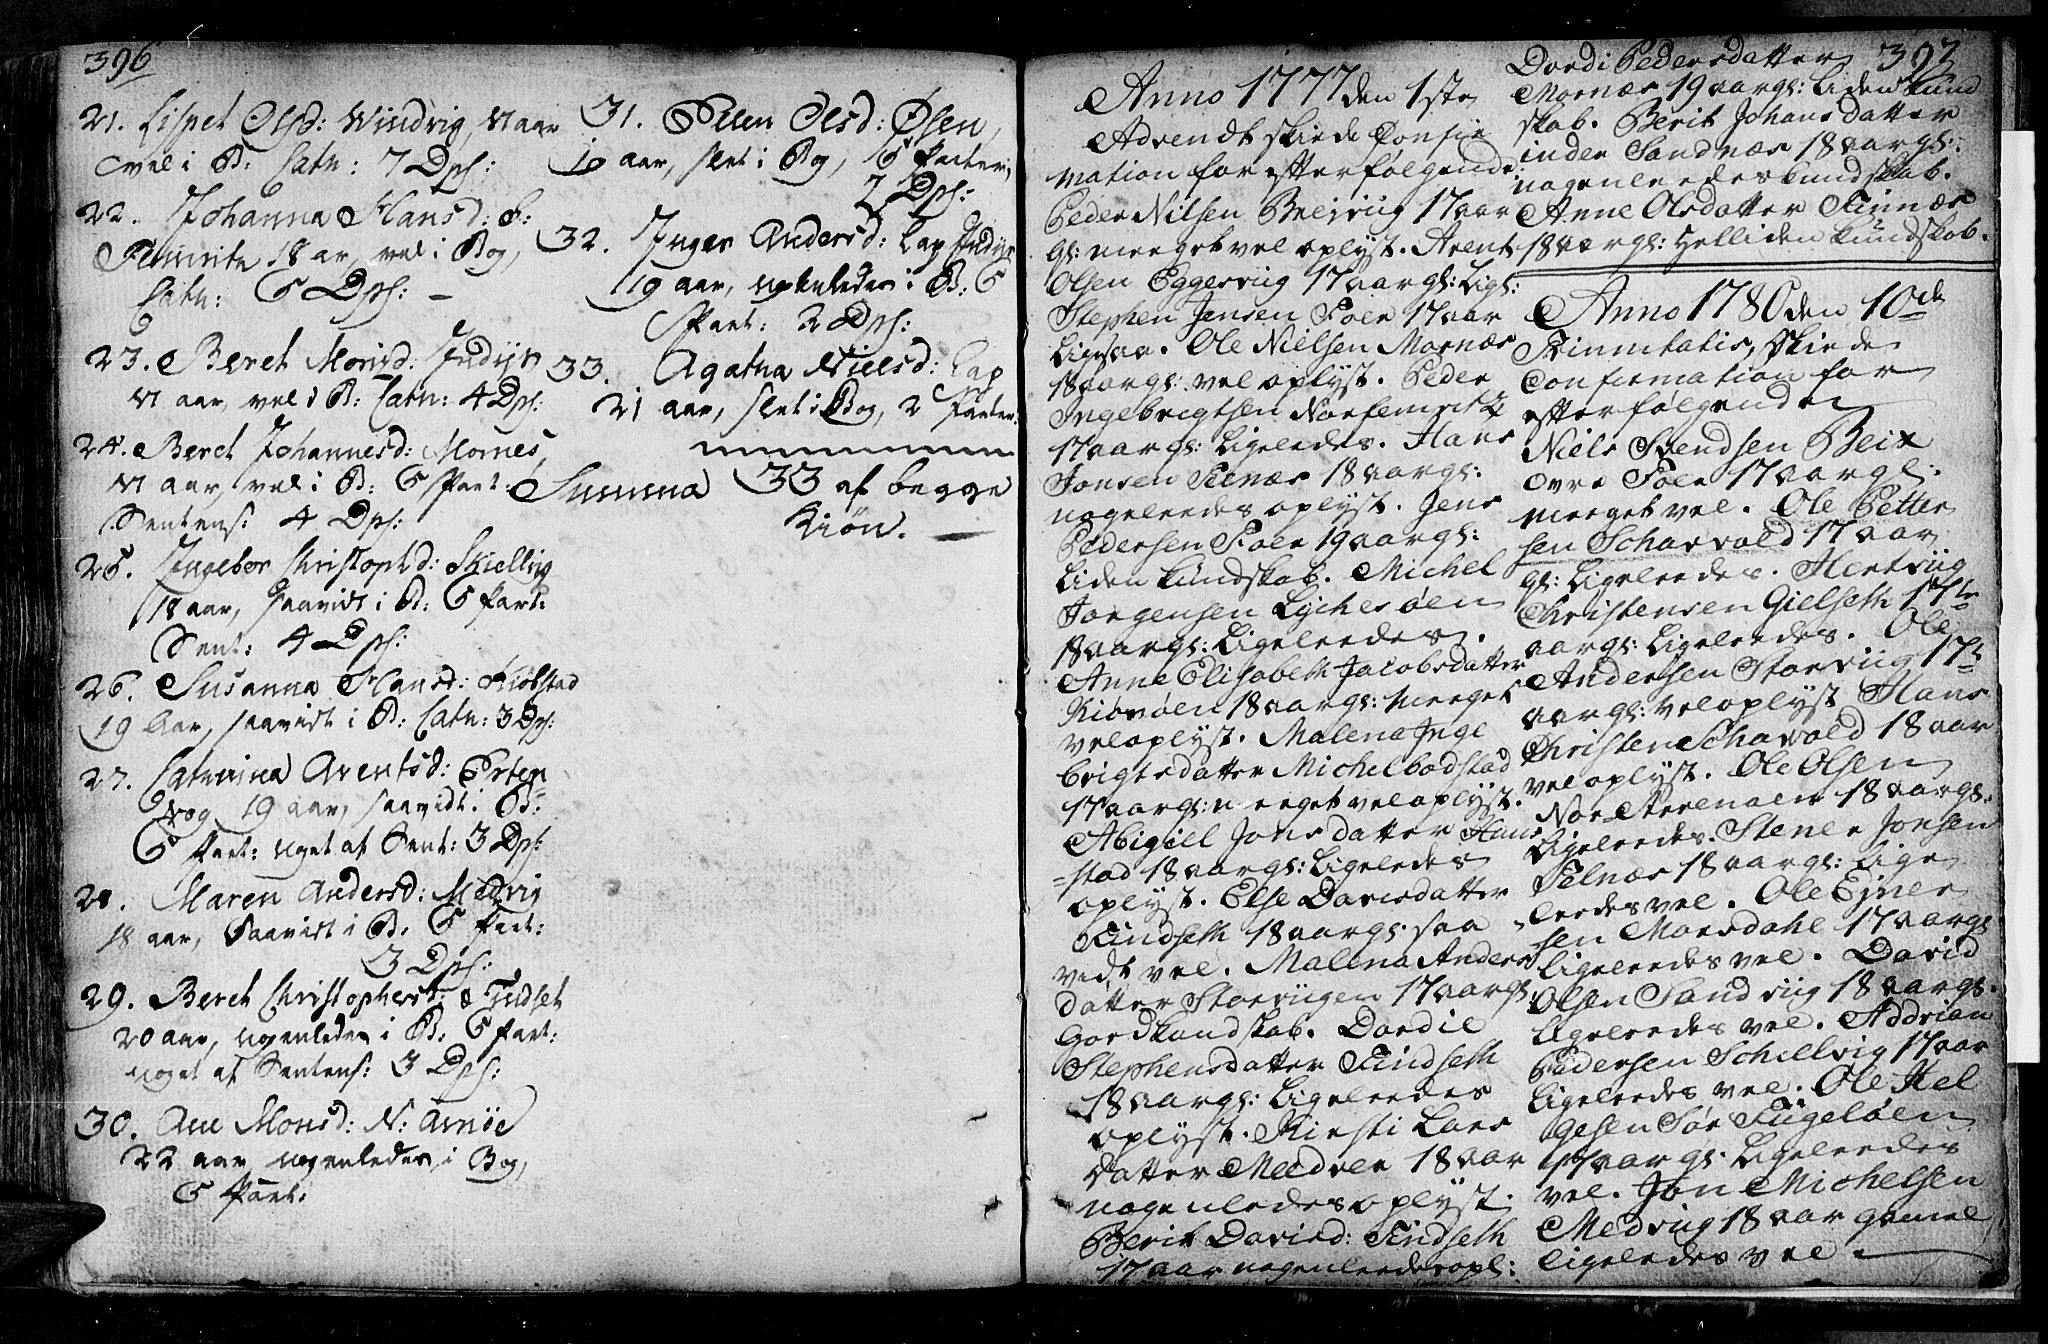 396
21. Lispet Olsd: Windvig, 17 aar
vel i B: Catn: 7 Dps:
22. Johanna Hansd: S:
Femrite 18 ar, vel i Bog,
Catn: 5 Dps: –
23. Beret Monsd: Indijr
17 aar, vel i B: Catn: 4 Dps:
24. Beret Johannesd: Mornes,
17 aar, vel i B: 5 Part:
Sentens: 4 Dps:
25. Ingebor Christophd: Skiellvig
18 aar, saavidt i B: 5 Part:
Sent: 4 Dps:
26. Susanna Hansd: Kiobstad
19 Aar, saavidt i B: Catn: 3 Dps:
27. Catrina Arentsd:
vog 19 aar, saavidt i B:
5 Part: noget af Sent: 3 Dps:
28. Maren Andersd: Medvig
18 aar, Saavidt i B. 5 Part:
3 Dps:
29. Beret Christophersd: Findset
20 aar, nogenledes i B: 5 Part:
noget af Sentens: 3 Dps:
30. Ane Monsd: N: Arnøe
22 aar, nogenledes i Bog,
5 Part:
31. Olsd: Øsen,
19 aar, slet i Bog, 5 Parter,
2 Dps:
32. Inger Andersd: Lap Indijr
19 aar, nogenledes i B: 5
Part: 2 Dps:
33. Agatha Nielsd: Lap
21 aar, slet i Bog, 2 Parter.
Summa 33 af begge
Kiøn. –
397
Anno 1777 den 1ste
Advendt skiede Confir
mation for efterfølgende:
Peder Nilsen Breivug 17 aar
gl: meeget vel oplyst. Arent
Olsen Eggesvug 17 aargl: Ligl:
Stephen Jensen Foer 17 aar
Ligesaa. Ole Nielsen Mornæs
18 aargl: vel oplyst. Peder
Ingebrigtsen Norfemrite
17 aargl: Ligeleedes. Hans
Jonsen Selnæs 18 aargl:
nogeleedes oplyst. Jens
Pedersen Foer 19 aargl:
Liden kundskab. Michel
Jørgensen Lychesøen
18 aargl: Ligeleedes.
Anne Elisabeth Jacobsdatter
Kiovøen 18 aargl: Meeget
vel oplyst. Malena Inge
brigtsdatter Michelbodstad
17 aargl: meeget vel oplyst.
Abigiell Jonsdatter Hans
=stad 18 aargl: Ligeledes
oplyst. Else Davisdatter
Findseth 18 aargl: saa
vidt vel. Malena Anders
datter Storvugen 17 aargl:
God kundskab. Dordie
Stephensdatter Findseth
18 aargl: Ligeleedes
oplyst. Kirsti Lars
datter Medvee 18 aar
nogenledes oplyst.
Berit Davisd: Findseth
17 aar nogenleedes opl:
Dordi Pedersdatter
Mornæs 19 aargl: Liden kund
skab. Berit Johansdatter
inder Sandnæs 18 aargl:
nogenleedes kundskab.
Anne Olsdatter Finnæs
18 aargl: Hel liden kundskab.
Anno 1780 den 10de
Trinnitatis, skiede
Confirmation for
efterfølgende
Niels Svendsen Beix
Ovre Foer 17 aargl:
meeget vel. Ole Petter
sen Scharvold 17 aar
gl: Ligeleedes. Hentrug
Christensen Gielseth 17 1/2
aargl: Ligeleedes. Ole
Andersen Storvug 17 1/2
aargl: vel oplyst Hans
Christen Scharvold 18 aar
vel oplyst. Ole Olsen
Norderarnøen 18 aargl:
Ligeleedes. Stener Jonsen
Selnæs 18 aargl: Lige
leedes vel. Ole Ejner
sen Morsdahl 17 aargl
Ligeleedes vel. David
Olsen Sandvug 18 aargl:
Ligeleedes vel. Addrian
Pedersen Schellvig 17 aar
Ligeleedes vel. Ole Hel
gesen Sør Fugeløen
17 aargl: Ligeleedes
vel. Jon Michelsen
Medvug 18 aar gamel
Ligeledes vel